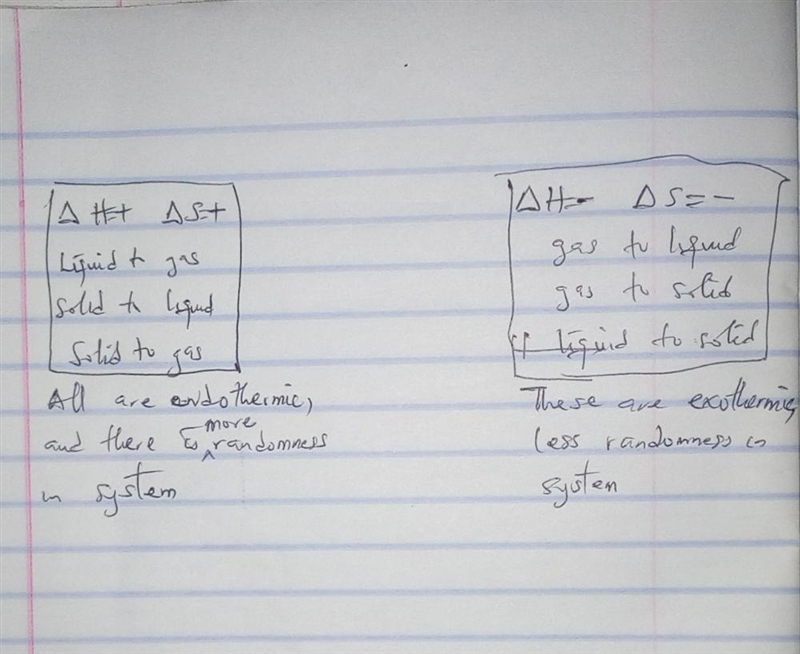 Δ H=+ ΔS=+
Liquid to gas
Solid to liquid
Solid to gas
All are endothermic,
and there is more randomness
in system
ΔH=- ΔS=-
gas to liquid
gas to solid
liquid to solid
These are exothermic,
less randomness in
system